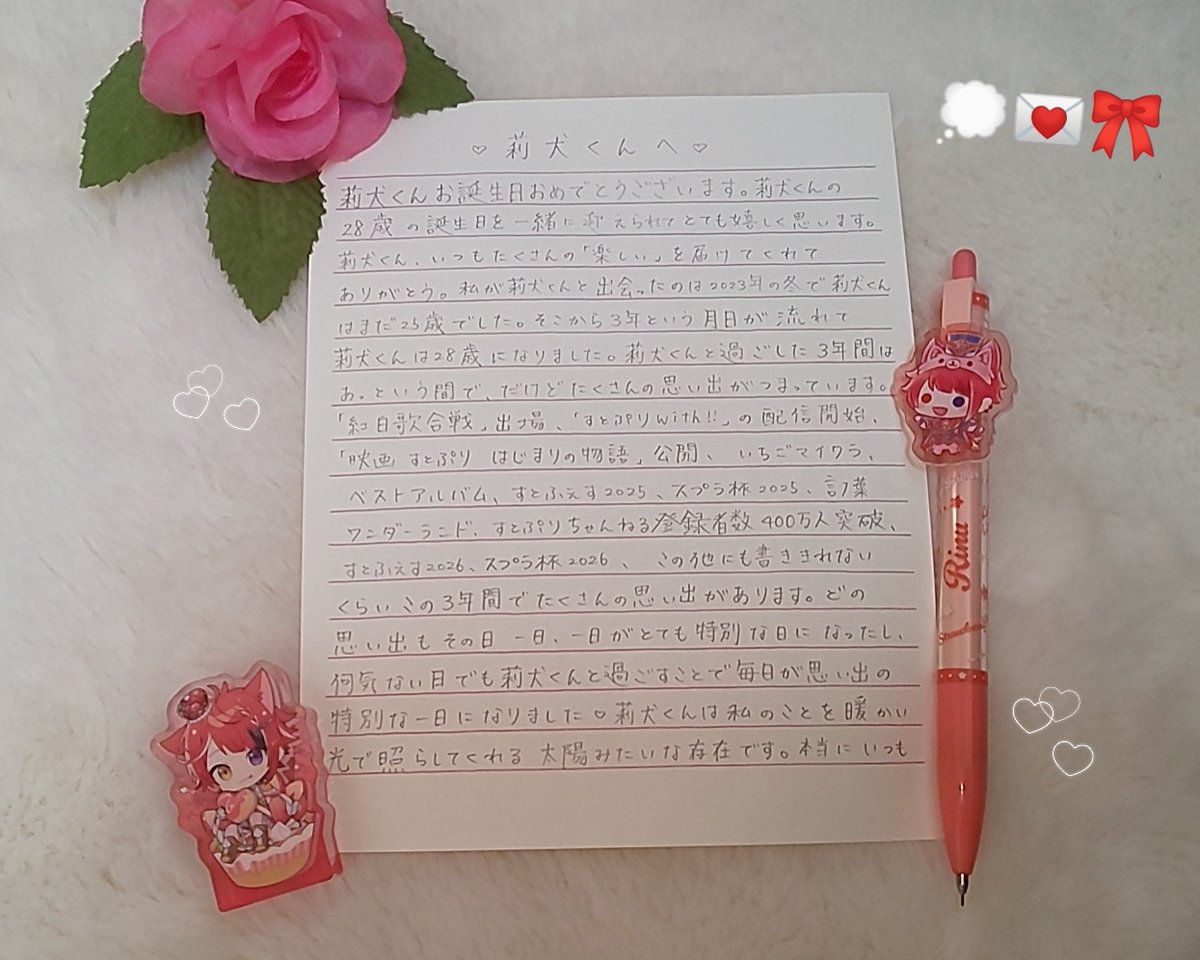 ♡ 莉犬くんへ ♡
莉犬くんお誕生日おめでとうございます。莉犬くんの
28歳の誕生日を一緒に迎えられてとても嬉しく思います。
莉犬くん、いつもたくさんの「楽しい」を届けてくれて
ありがとう。私が莉犬くんと出会ったのは2023年の冬で莉犬くん
はまだ25歳でした。そこから3年という月日が流れて
莉犬くんは28歳になりました。莉犬くんと過ごした3年間は
あっという間で、だけどたくさんの思い出がつまっています。
「紅白歌合戦」出場、「すとぷりwith!!」の配信開始、
「映画 すとぷり はじまりの物語」公開、いちごマイクラ、
ベストアルバム、すとふぇす2025、スプラ杯2025、言ノ葉
ワンダーランド、すとぷりちゃんねる登録者数400万人突破、
すとふぇす2026、スプラ杯2026、この他にも書ききれない
くらいこの3年間でたくさんの思い出があります。どの
思い出もその日一日、一日がとても特別な日になったし、
何気ない日でも莉犬くんと過ごすことで毎日が思い出の
特別な一日になりました♡莉犬くんは私のことを暖かい
光で照らしてくれる太陽みたいな存在です。本当にいつも
Rinu